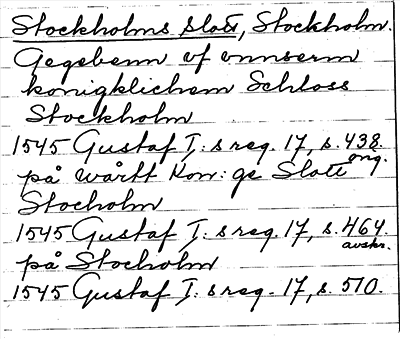 Stockholms slott, Stockholm.
Gegebenn vf vnnserm
konigklichem Schloss
Stockholm
1545 Gustaf I:s reg. 17, s. 438.
orig.
på wårtt Kon:ge Slott
Stocholm
1545 Gustaf I:s reg. 17, s. 464.
avskr.
på Stocholm
1545 Gustaf I:s reg. 17, s. 510.